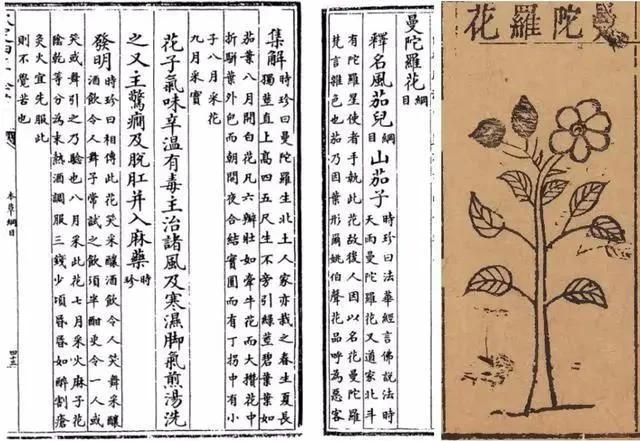 曼陀羅花
曼陀羅花綱目
釋名風茄兒綱目山茄子時珍曰法華經言佛說法時
天雨曼陀羅花又道家北斗
有陀羅星使者手執此花故後人因以名花曼陀羅
梵言雜色也茄乃因葉形爾姚伯聲花品呼為惡客
集解時珍曰曼陀羅生北土人家亦栽之春生夏長
獨莖直上高四五尺生不旁引綠莖碧葉葉如
茄葉八月開白花凡六瓣狀如牽牛花而大攢花中
折駢葉外包而朝開夜合結實圓而有丁拐中有小
子八月采花
九月采實
花子氣味辛溫有毒主治諸風及寒濕脚氣煎湯洗
之又主驚癇及脫肛并入麻藥時珍
發明時珍曰相傳此花笑采釀酒飲令人笑舞采釀
酒飲令人舞予常試之飲須半酣更令一人或
笑或舞引之乃驗也八月采此花七月采火麻子花
陰乾等分為末熱酒調服三錢少頃昏昏如醉割瘡
灸火宜先服此
則不覺苦也
本草綱目
四三